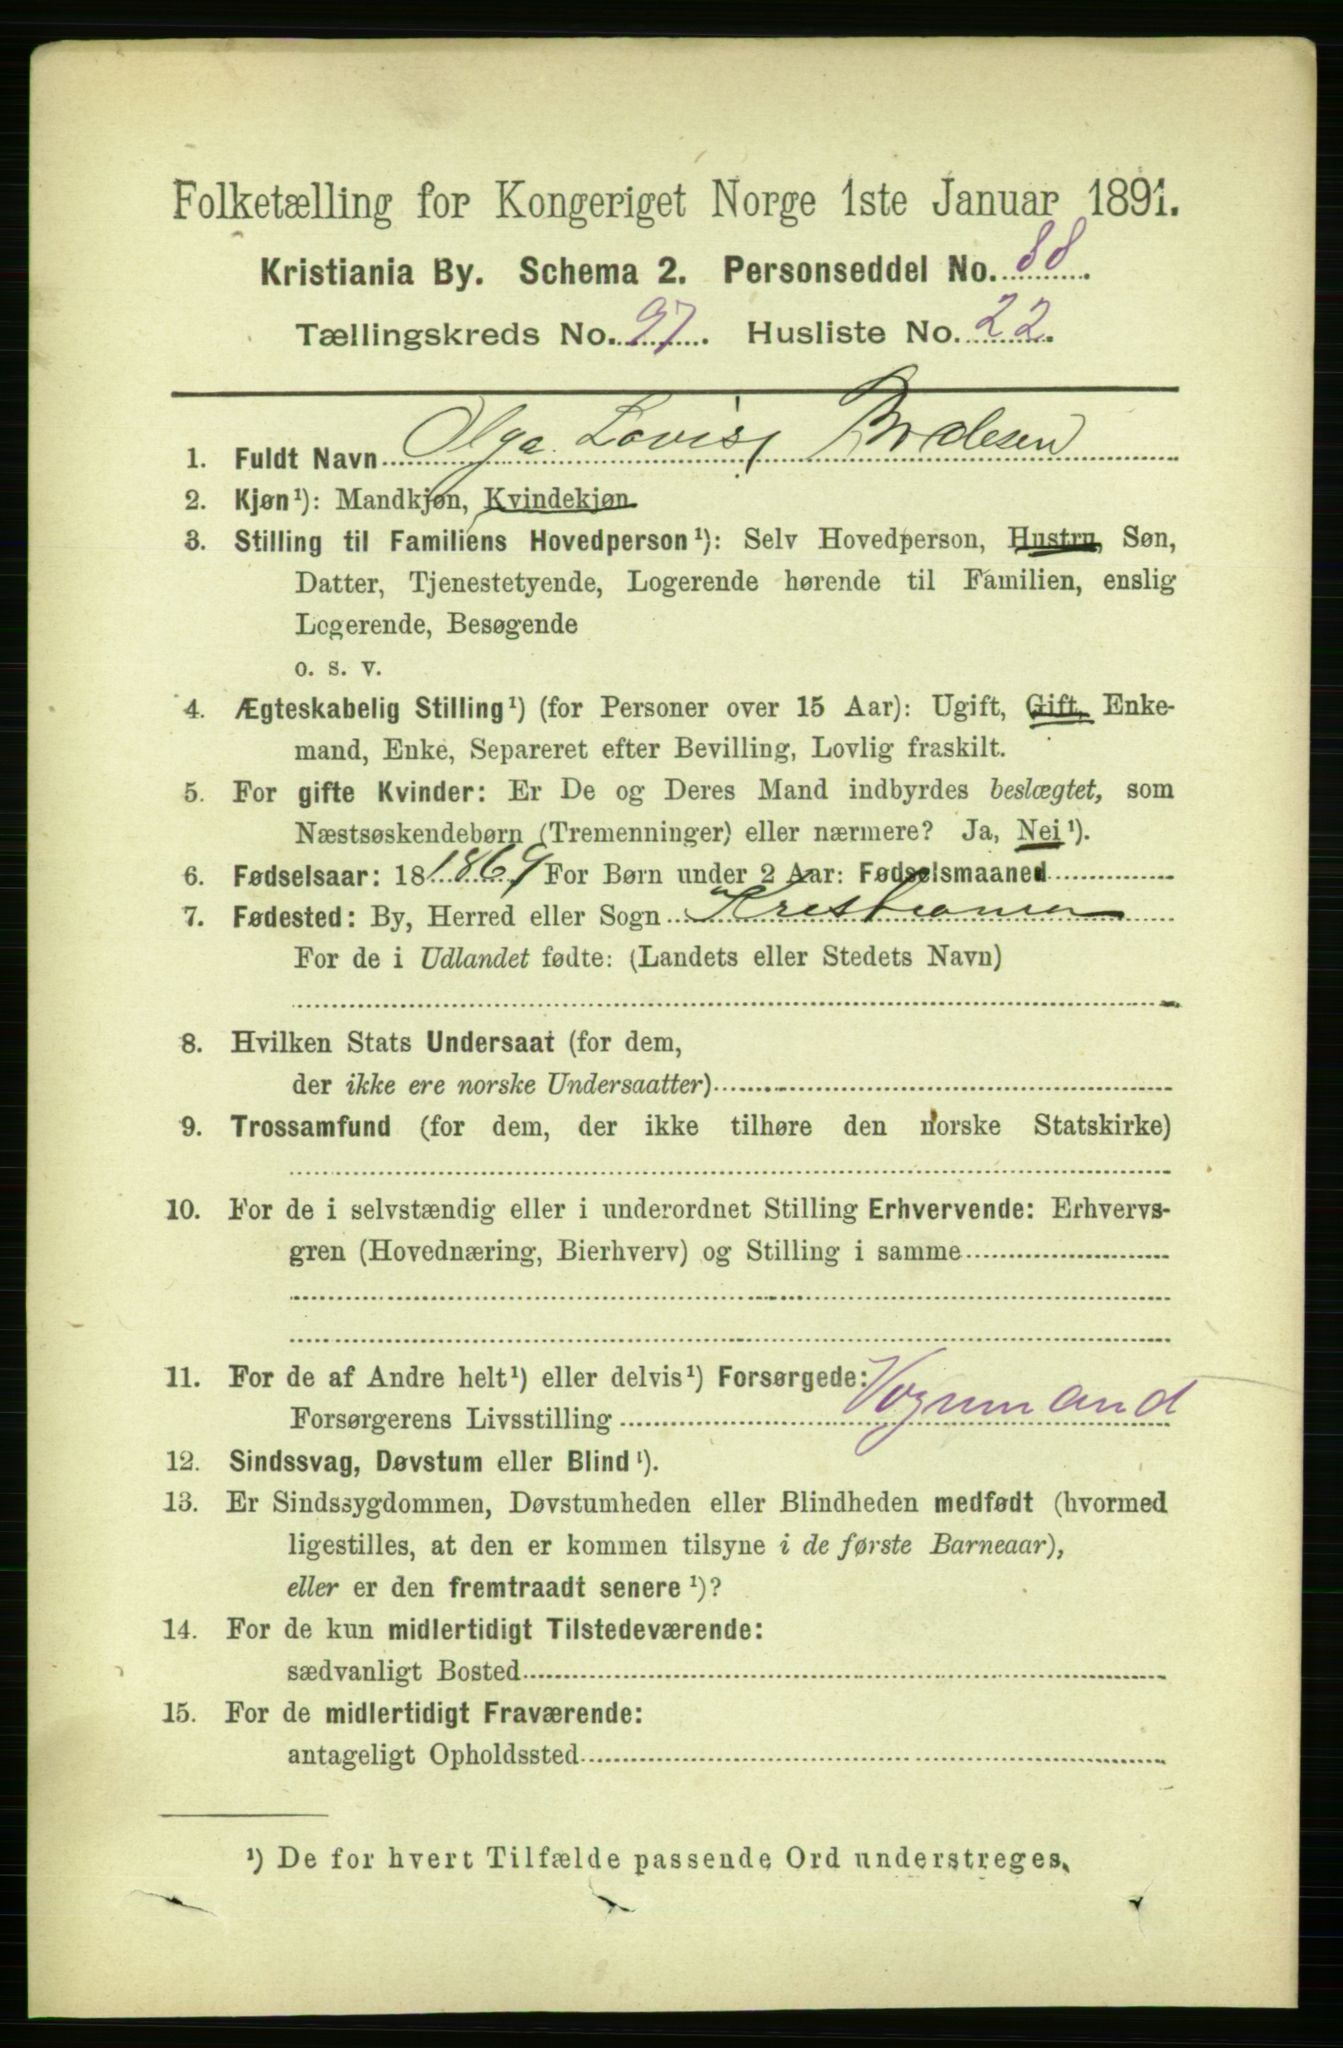 Folketælling for Kongeriget Norge 1ste Januar 1891.
Kristiania By. Schema 2. Personseddel No. 88.
Tællingskreds No. 97. Husliste No. 22.
1. Fuldt Navn Olga Lovise
2. Kjøn¹): Mandkjøn, Kvindekjøn.
3. Stilling til Familiens Hovedperson¹): Selv Hovedperson, Hustru, Søn,
Datter, Tjenestetyende, Logerende hørende til Familien, enslig
Logerende, Besøgende
o. s. v.
4. Ægteskabelig Stilling¹) (for Personer over 15 Aar): Ugift, Gift, Enke-
mand, Enke, Separeret efter Bevilling, Lovlig fraskilt.
5. For gifte Kvinder: Er De og Deres Mand indbyrdes beslægtet, som
Næstsøskendebørn (Tremenninger) eller nærmere? Ja, Nei¹).
6. Fødselsaar: 18 1869 For Børn under 2 Aar: Fødselsmaaned
7. Fødested: By, Herred eller Sogn Kristiania
For de i Udlandet fødte: (Landets eller Stedets Navn)
8. Hvilken Stats Undersaat (for dem,
der ikke ere norske Undersaatter)
9. Trossamfund (for dem, der ikke tilhøre den norske Statskirke)
10. For de i selvstændig eller i underordnet Stilling Erhvervende: Erhvervs-
gren (Hovednæring, Bierhverv) og Stilling i samme
11. For de af Andre helt¹) eller delvis¹) Forsørgede:
Forsørgerens Livsstilling Vognmand
12. Sindssvag, Døvstum eller Blind¹).
13. Er Sindssygdommen, Døvstumheden eller Blindheden medfødt (hvormed
ligestilles, at den er kommen tilsyne i de første Barneaar),
eller er den fremtraadt senere¹)?
14. For de kun midlertidigt Tilstedeværende:
sædvanligt Bosted
15. For de midlertidigt Fraværende:
antageligt Opholdssted
¹) De for hvert Tilfælde passende Ord understreges.